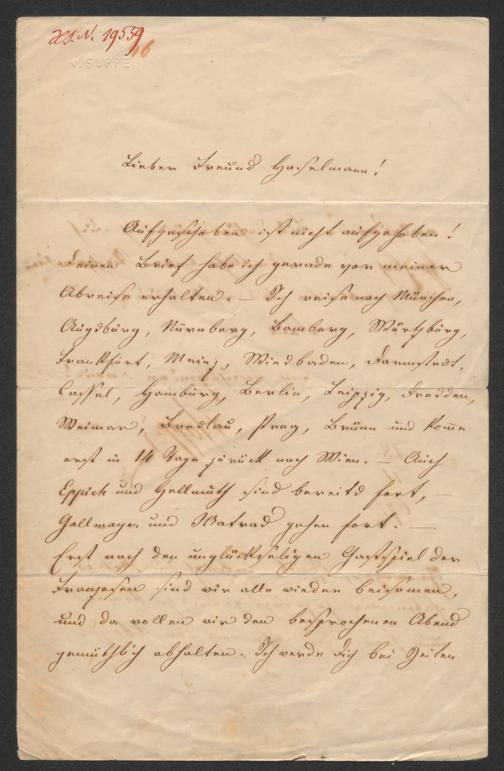 H.I.N. 19559
46
v. SUPPÉ
Lieber Freund Haselmann!
Aufgeschoben ist nicht aufgehoben!
Deinen Brief habe ich gerade vor meiner
Abreise erhalten. — Ich reise nach München,
Augsburg, Nürnberg, Bamberg, Würzburg,
Frankfurt, Mainz, Wiesbaden, Darmstadt,
Cassel, Hamburg, Berlin, Leipzig, Dresden,
Weimar, Breslau, Prag, Brünn und komme
erst in 14 Tage zurück nach Wien. — Auch
Eppich und Hellmuth sind bereits fort, —
Gallmayer und Matras gehen fort. —
Erst nach den unglückseligen Gastspiel der
Franzosen sind wir alle wieder beisamen,
und da wollen wir den besprochenen Abend
gemüthlich abhalten. Ich werde Dich bei Zeiten